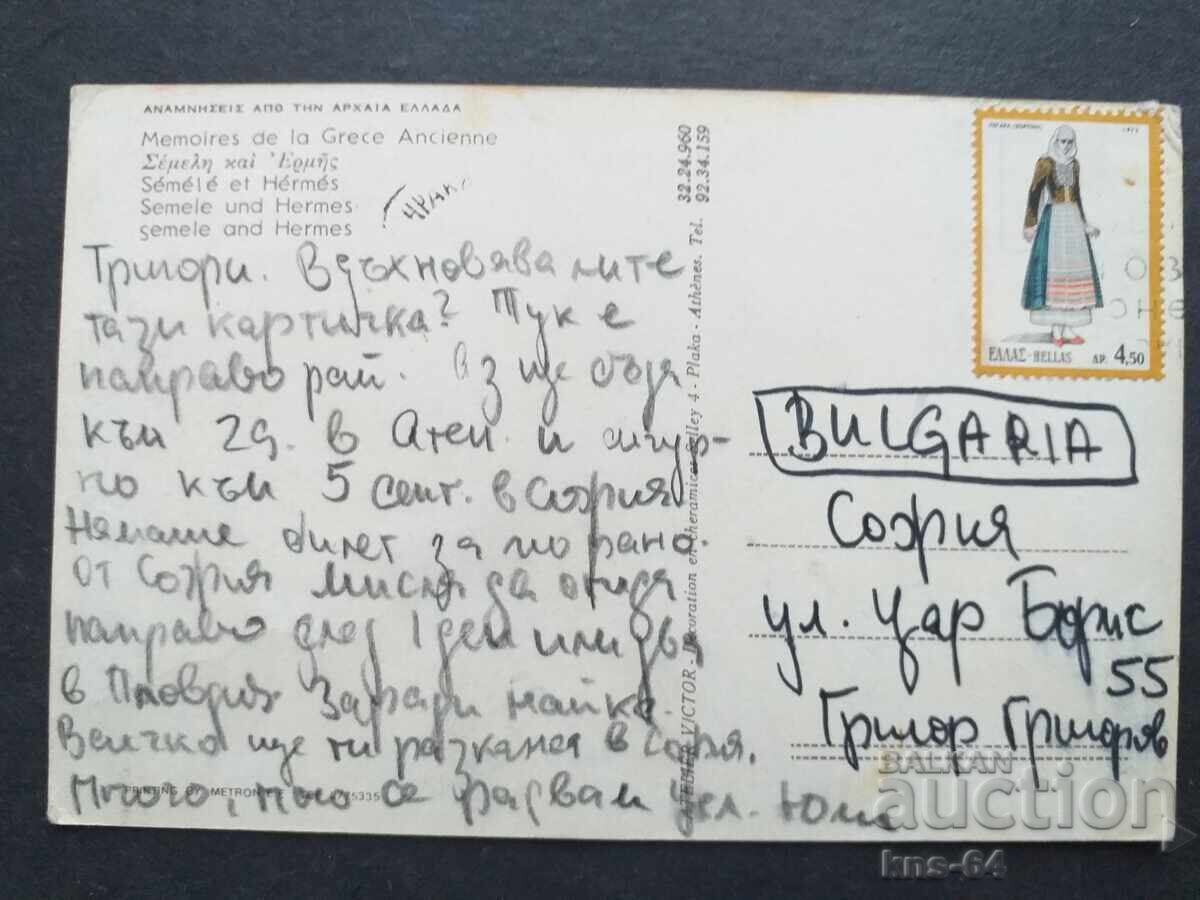 ΑΝΑΜΝΗΣΕΙΣ ΑΠΟ ΤΗΝ ΑΡΧΑΙΑ ΕΛΛΑΔΑ
Memoires de la Grece Ancienne
Σέμελη καὶ Ἑρμῆς
Sémélé et Hérmés
Semele und Hermes
şemele and Hermes
Григори. Вдъхновява ли те
тази картичка? Тук е
направо рай. Аз ще бъда
към 29. в Атен. и сигур-
но към 5 септ. в София
Нямаше билет за по рано.
От София мисля да отида
направо след 1 ден или два
в Пловдив Заради майка.
Всичко ще ти разкажа в София.
Много, много се радвам
PRINTING BY METRON
75335
VICTOR - Decoration en cheramices Kelley 4 - Plaka - Athènes. Tel. 32.24.960
92.34.159
1972
ΕΛΛΑΣ-HELLAS ΔΡ. 4,50
BULGARIA
София
ул. Цар Борис
55
Григор Григоров
BALKAN
auction
kns-64